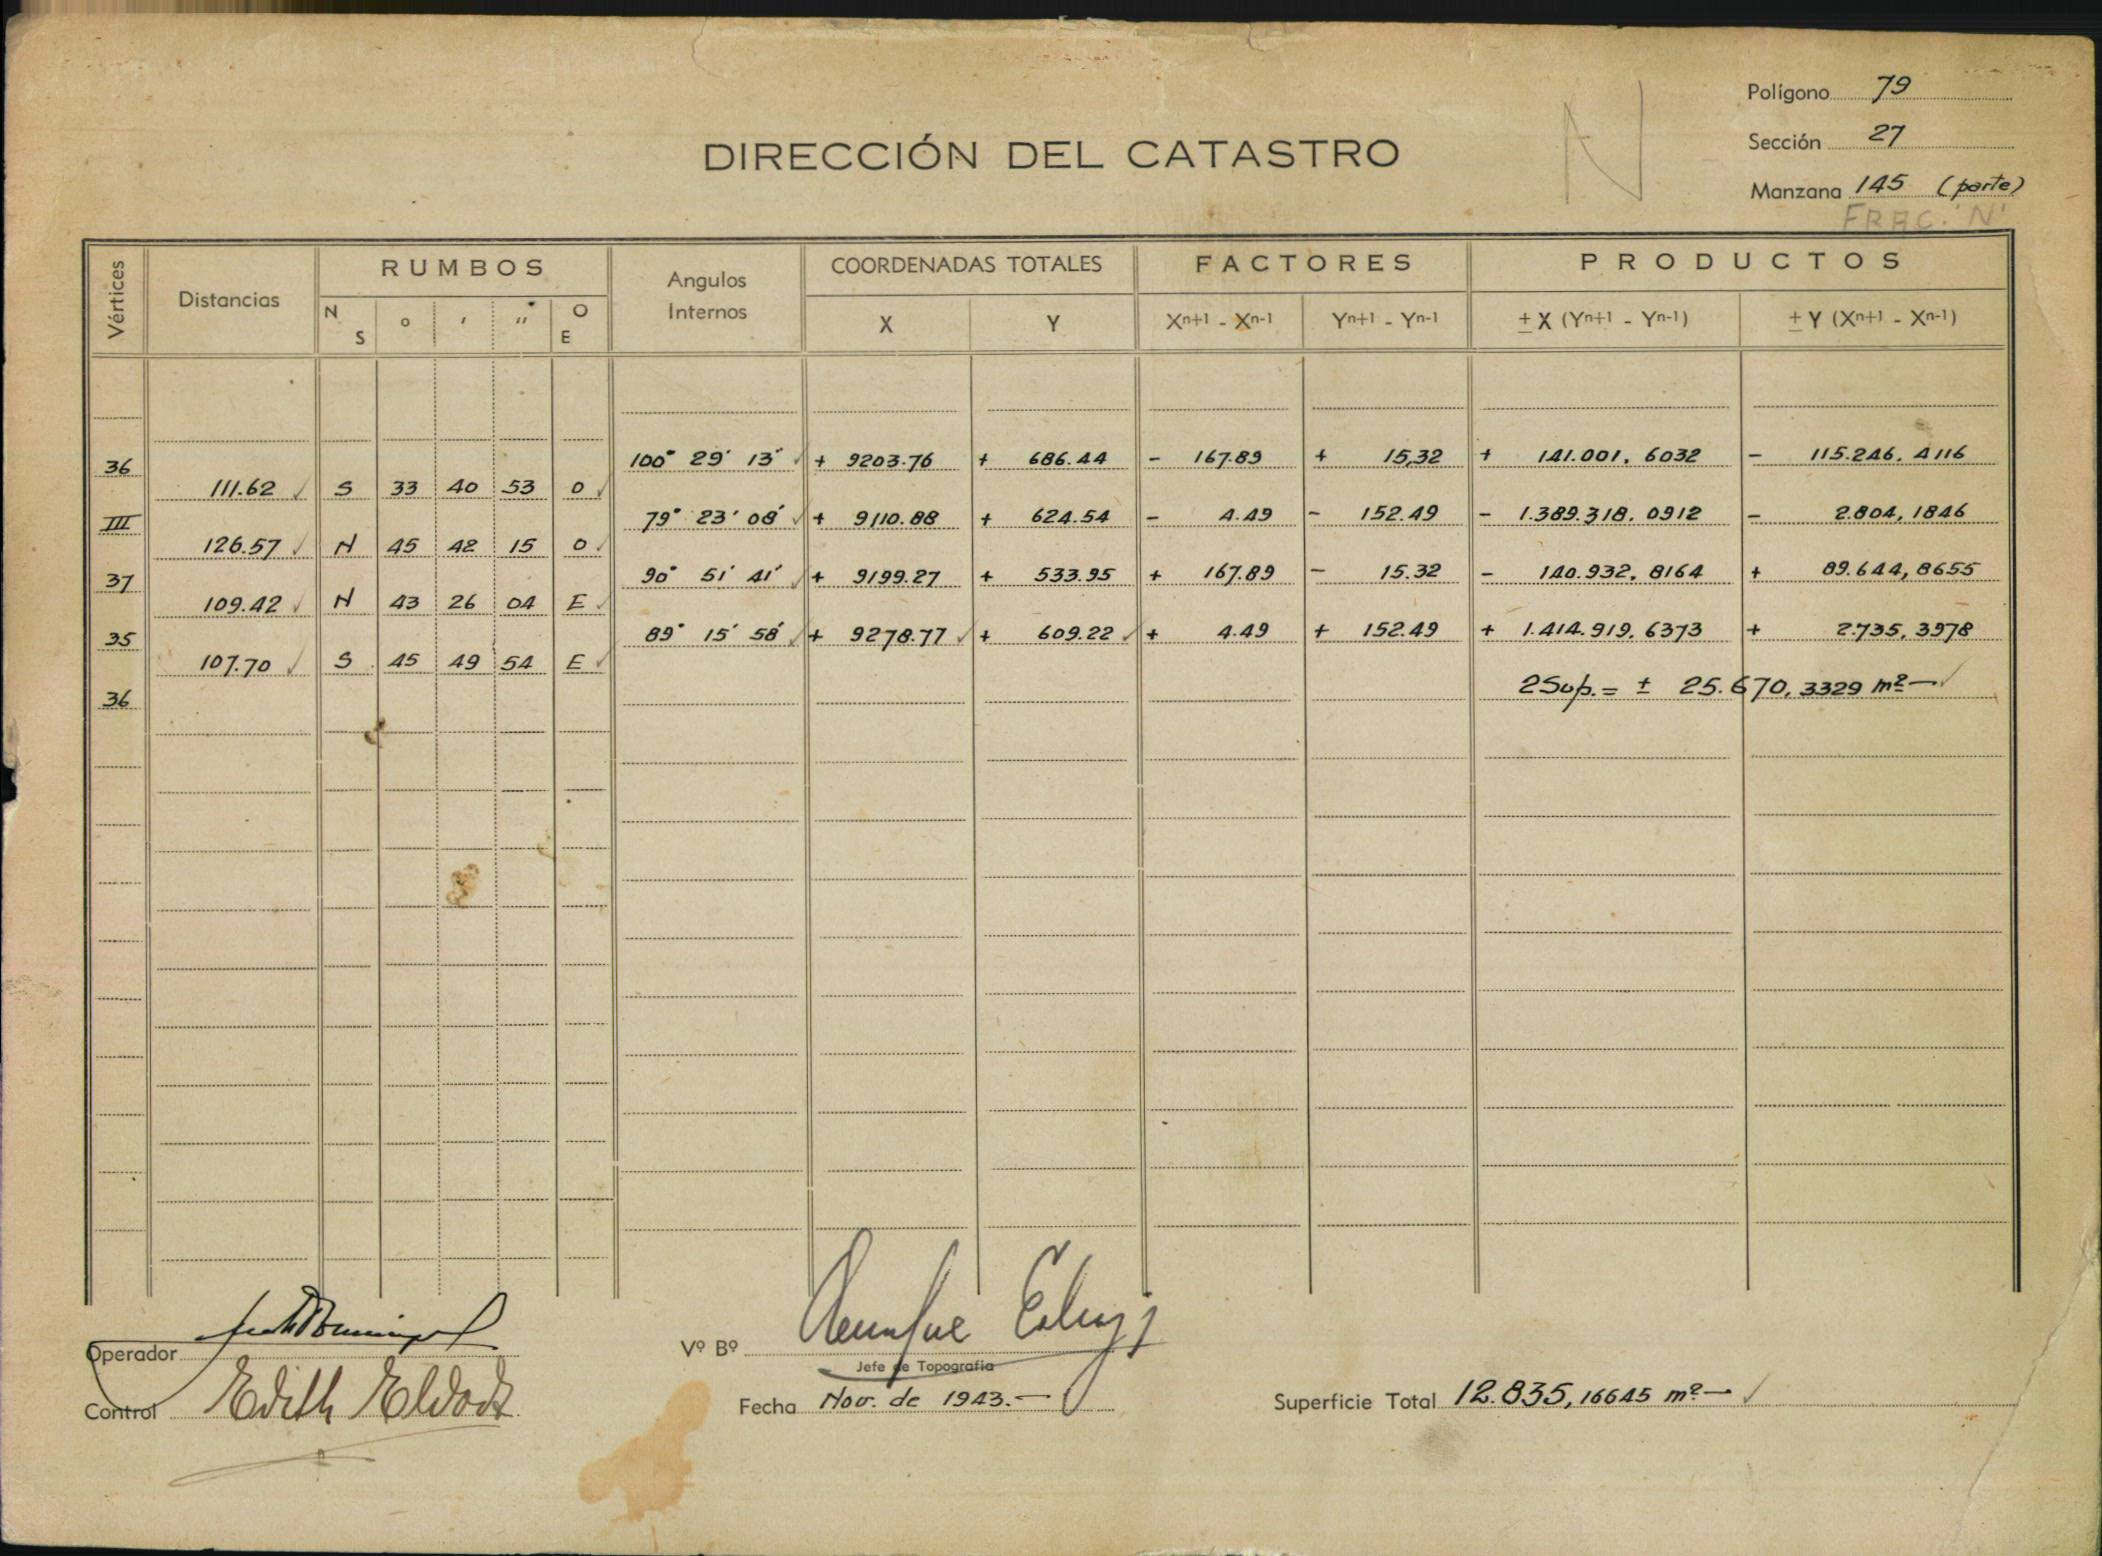 Polígono 79
DIRECCIÓN DEL CATASTRO
Sección 27
Manzana 145 (parte)
FRAC. 'N'
N
Vértices Distancias RUMBOS Angulos Internos COORDENADAS TOTALES FACTORES PRODUCTOS
N S o ' " O E X Y Xn+1 - Xn-1 Yn+1 - Yn-1 ± X (Yn+1 - Yn-1) ± Y (Xn+1 - Xn-1)
36 100° 29' 13' + 9203.76 + 686.44 - 167.89 + 15,32 + 141.001, 6032 - 115.246, 4116
111.62 S 33 40 53 O
III 79° 23' 08' + 9110.88 + 624.54 - 4.49 - 152.49 - 1.389.318, 0912 - 2.804, 1846
126.57 N 45 42 15 O
37 90° 51' 41' + 9199.27 + 533.95 + 167.89 - 15.32 - 140.932, 8164 + 89.644, 8655
109.42 N 43 26 04 E
35 89° 15' 58' + 9278.77 + 609.22 + 4.49 + 152.49 + 1.414.919, 6373 + 2.735, 3978
107.70 S 45 49 54 E
36 2Sup. = ± 25.670, 3329 m²
Operador
Vº Bº
Jefe de Topografía
Control Edith
Fecha Nov. de 1943.-
Superficie Total 12.835,16645 m²